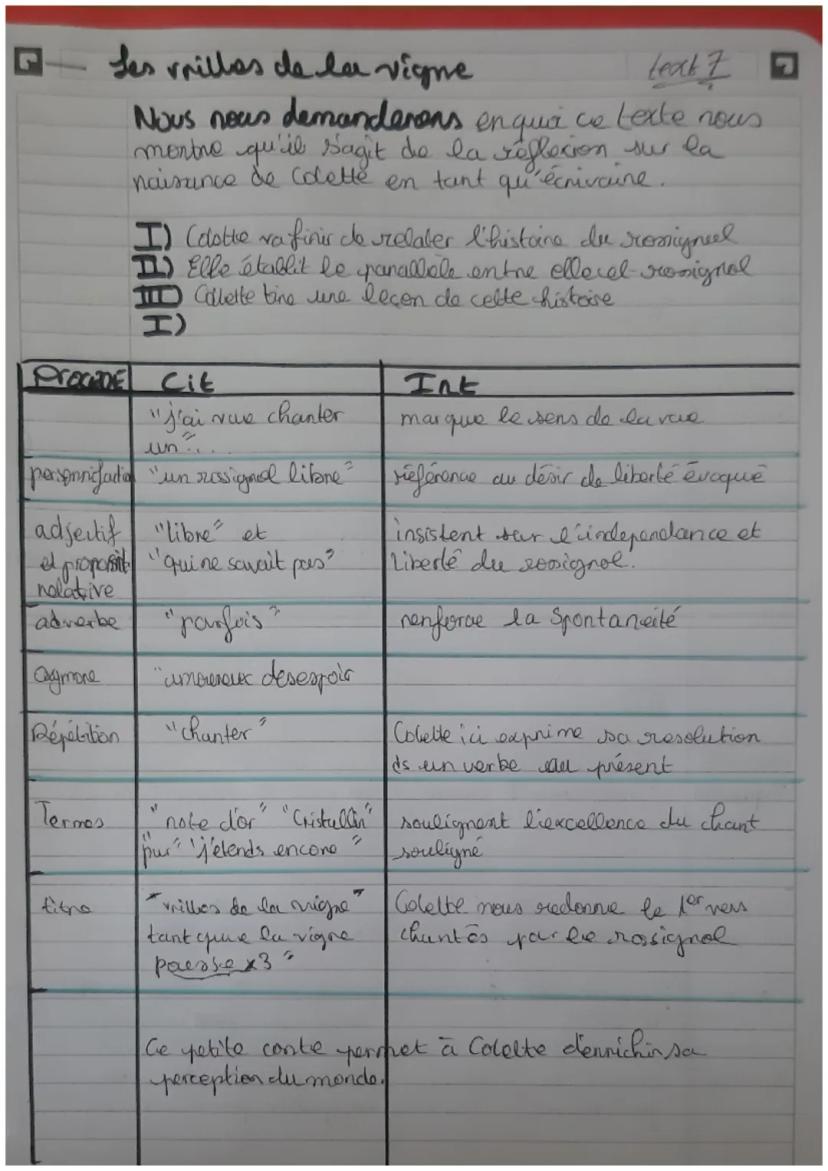 Les vrilles de la vigne
text 7
Nous nous demanderons en quoi ce texte nous
montre qu'il s'agit de la réflexion sur la
naissance de Colette en tant qu'écrivaine.
I) Colette va finir de relater l'histoire du rossignuel
II) Elle établit le parallèle entre elle et rossignol
III) Collette tire une leçon de cette histoire
I)
PROCEDE Cit Int
"j'ai vue chanter marque le sens de la vue
un"...
personnification "un rossignol libre" référence au désir de liberté évoqué
adjectif "libre" et insistent sur l'independance et
et proposit "qui ne savait pas" liberté du rossignol.
relative
adverbe "parfois" renforce la spontaneité
"amoureux desespoir
Répétition "chanter" Colette ici exprime sa resolution
ds un verbe au présent
Termes "note d'or" "Cristallin" soulignent l'excellence du chant
"pur" "j'etends encore" souligné
titre "vrilles de la vigne" Colette nous redonne le 1er vers
tant que la vigne chantés par le rossignol
pousse x3"
Ce petite conte permet à Colette d'enrichir sa
perception du monde.